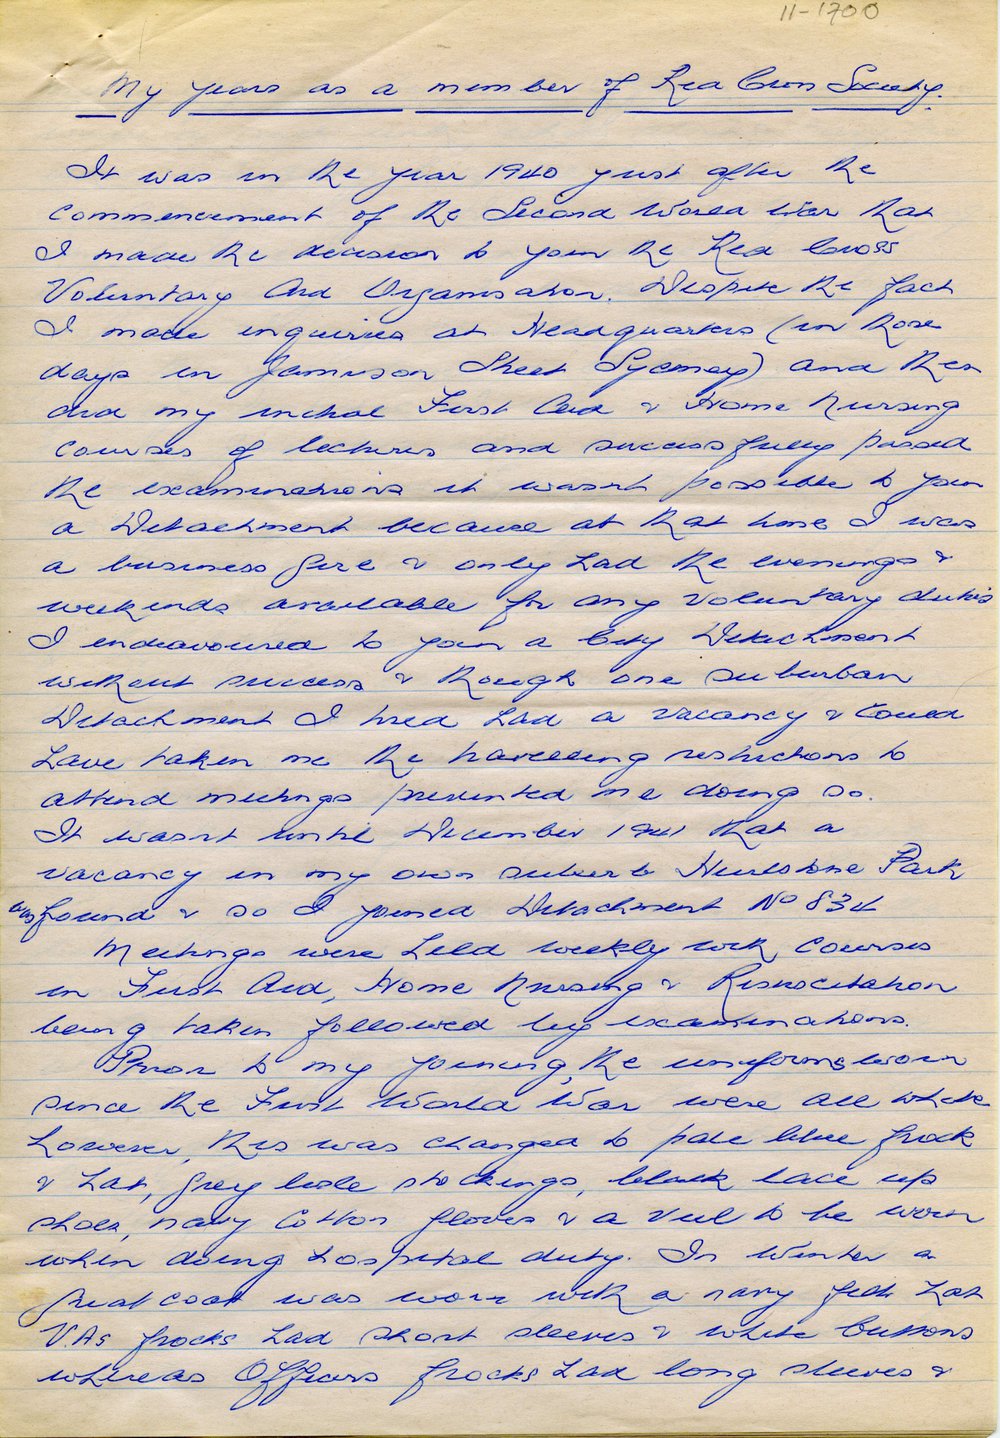 11-1700
My years as a member of Red Cross Society.
It was in the year 1940 just after the
commencement of the Second World War that
I made the decision to join the Red Cross
Voluntary Aid Organisation. Despite the fact
I made inquiries at Headquarters (in those
days in Jamison Street Sydney) and then
did my initial First Aid & Home Nursing
courses of lectures and successfully passed
the examinations it wasn't possible to join
a Detachment because at that time I was
a business girl & only had the evenings &
weekends available for any voluntary duties
I endeavoured to join a City Detachment
without success & though one suburban
Detachment I tried had a vacancy & could
have taken me the travelling restrictions to
attend meetings prevented me doing so.
It wasn't until December 1941 that a
vacancy in my own suburb Hurlstone Park
was found & so I joined Detachment No 834
Meetings were held weekly with courses
in First Aid, Home Nursing & Resuscitation
being taken followed by examinations.
Prior to my joining, the uniforms worn
since the First World War were all white
however, this was changed to pale blue frock
& hat, grey lisle stockings, black lace up
shoes, navy cotton gloves & a veil to be worn
when doing hospital duty. In Winter a
great coat was worn with a navy felt hat
V.As frocks had short sleeves & white buttons
whereas Officers frocks had long sleeves &